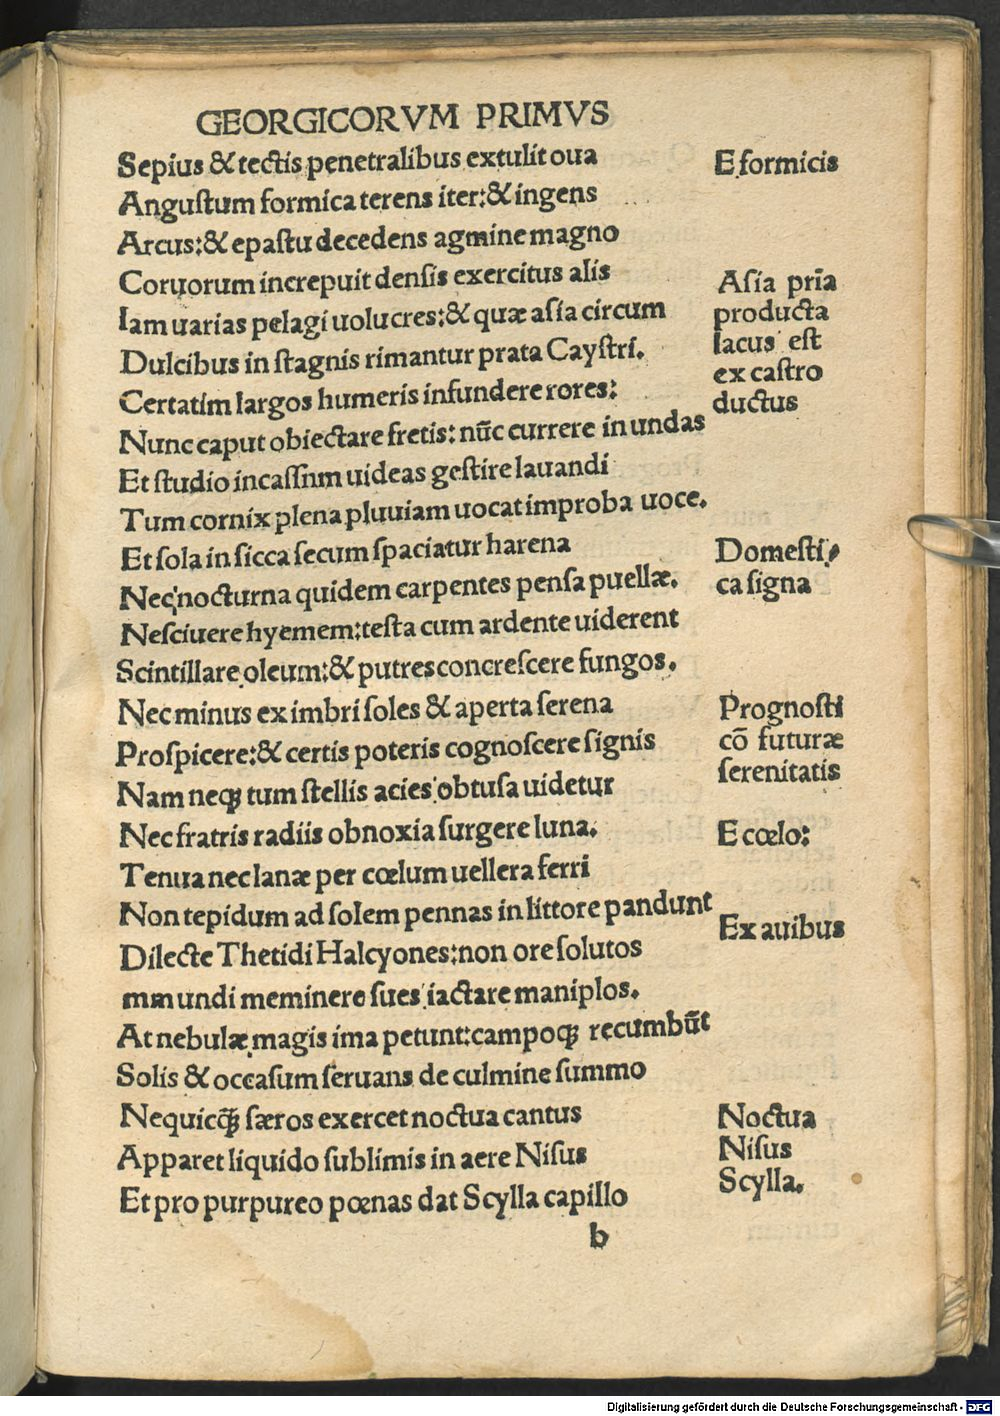 GEORGICORVM PRIMVS
Sepius & tectis penetralibus extulit oua
Angustum formica terens iter:& ingens
Arcus:& epastu decedens agmine magno
Coruorum increpuit densis exercitus alis
Iam uarias pelagi uolucres:& quæ asia circum
Dulcibus in stagnis rimantur prata Caystri.
Certatim largos humeris infundere rores:
Nunc caput obiectare fretis: nūc currere in undas
Et studio incassnm uideas gestire lauandi
Tum cornix plena pluuiam uocat improba uoce.
Et sola in sicca secum spaciatur harena
Nec nocturna quidem carpentes pensa puellæ.
Nesciuere hyemem:testa cum ardente uiderent
Scintillare oleum:& putres concrescere fungos.
Nec minus ex imbri soles & aperta serena
Prospicere:& certis poteris cognoscere signis
Nam neqꝫ tum stellis acies obtusa uidetur
Nec fratris radiis obnoxia surgere luna.
Tenua nec lanæ per cœlum uellera ferri
Non tepidum ad solem pennas in littore pandunt
Dilecte Thetidi Halcyones:non ore solutos
mmundi meminere sues iactare maniplos.
At nebulæ magis ima petunt:campoqꝫ recumbūt
Solis & occasum seruans de culmine summo
Nequicq̄ꝫ særos exercet noctua cantus
Apparet liquido sublimis in aere Nisus
Et pro purpureo pœnas dat Scylla capillo
b
E formicis
Asia pria̅
producta
lacus est
ex castro
ductus
Domesti/
ca signa
Prognosti
cō futuræ
serenitatis
E cœlo:
Ex avibus
Noctua
Nisus
Scylla.
Digitalisierung gefördert durch die Deutsche Forschungsgemeinschaft - DFG